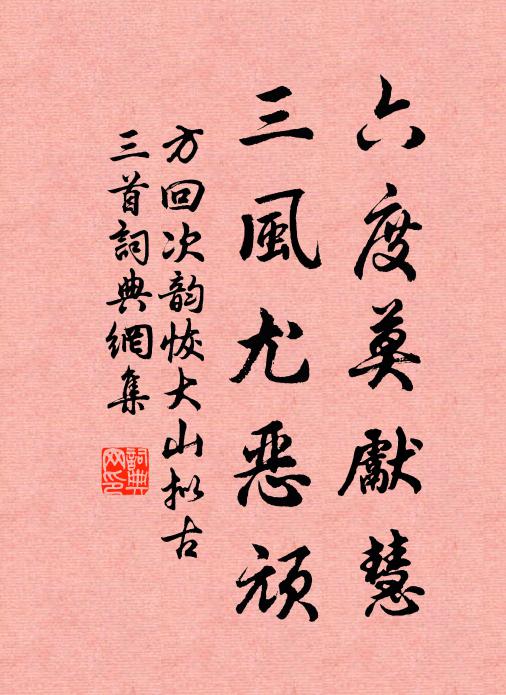 六度莫獻慧
三風尤惡頑
方回次韵恢大山拟古
三首詞典網集
詞典
网印